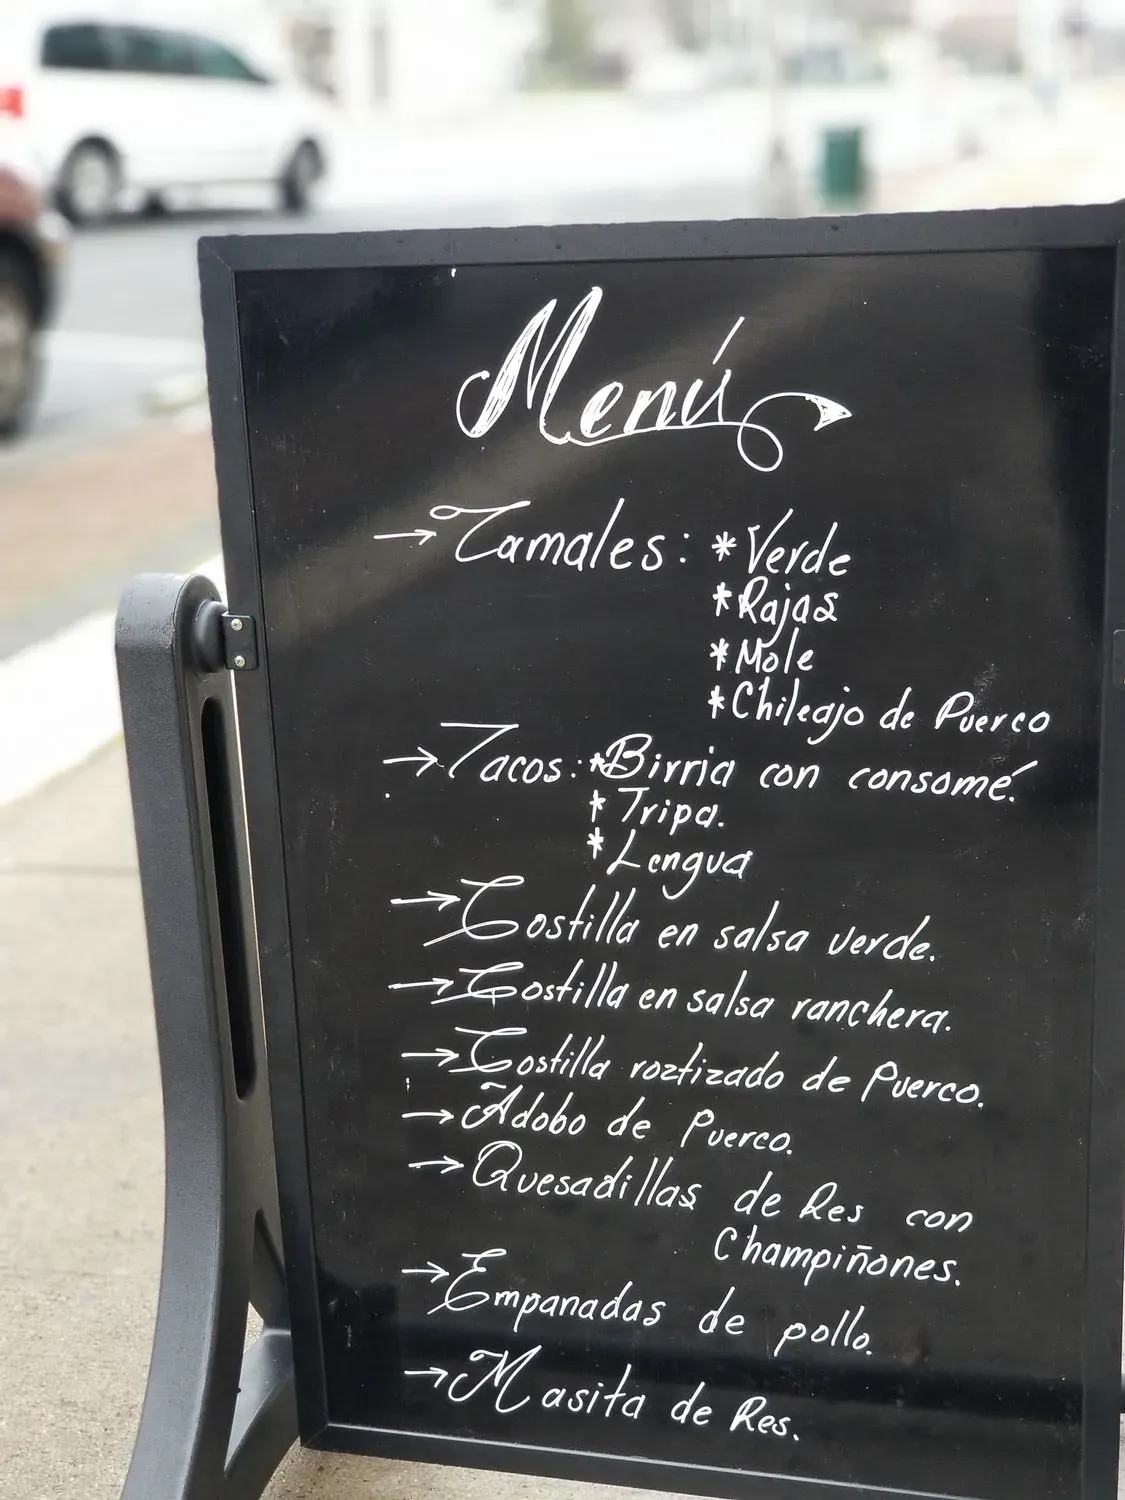 Menú
→ Tamales: * Verde
* Rajas
* Mole
* Chileajo de Puerco
→ Tacos: * Birria con consomé.
* Tripa.
* Lengua
→ Costilla en salsa verde.
→ Costilla en salsa ranchera.
→ Costilla roztizado de Puerco.
→ Adobo de Puerco.
→ Quesadillas de Res con
Champiñones.
→ Empanadas de pollo.
→ Masita de Res.